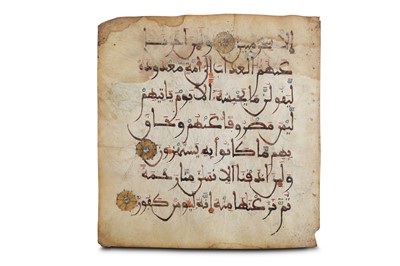 إلا سحر مبين ولين أخرنا
عنهم العذاب إلى أمة معدودة
ليقولن ما يحبسه ألا يوم ياتيهم
ليس مصروفا عنهم وحاق
بهم ما كانوا به يستهزءون
ولين أذقنا الانسن منا رحمة
ثم نزعنها منه إنه ليوس كفور